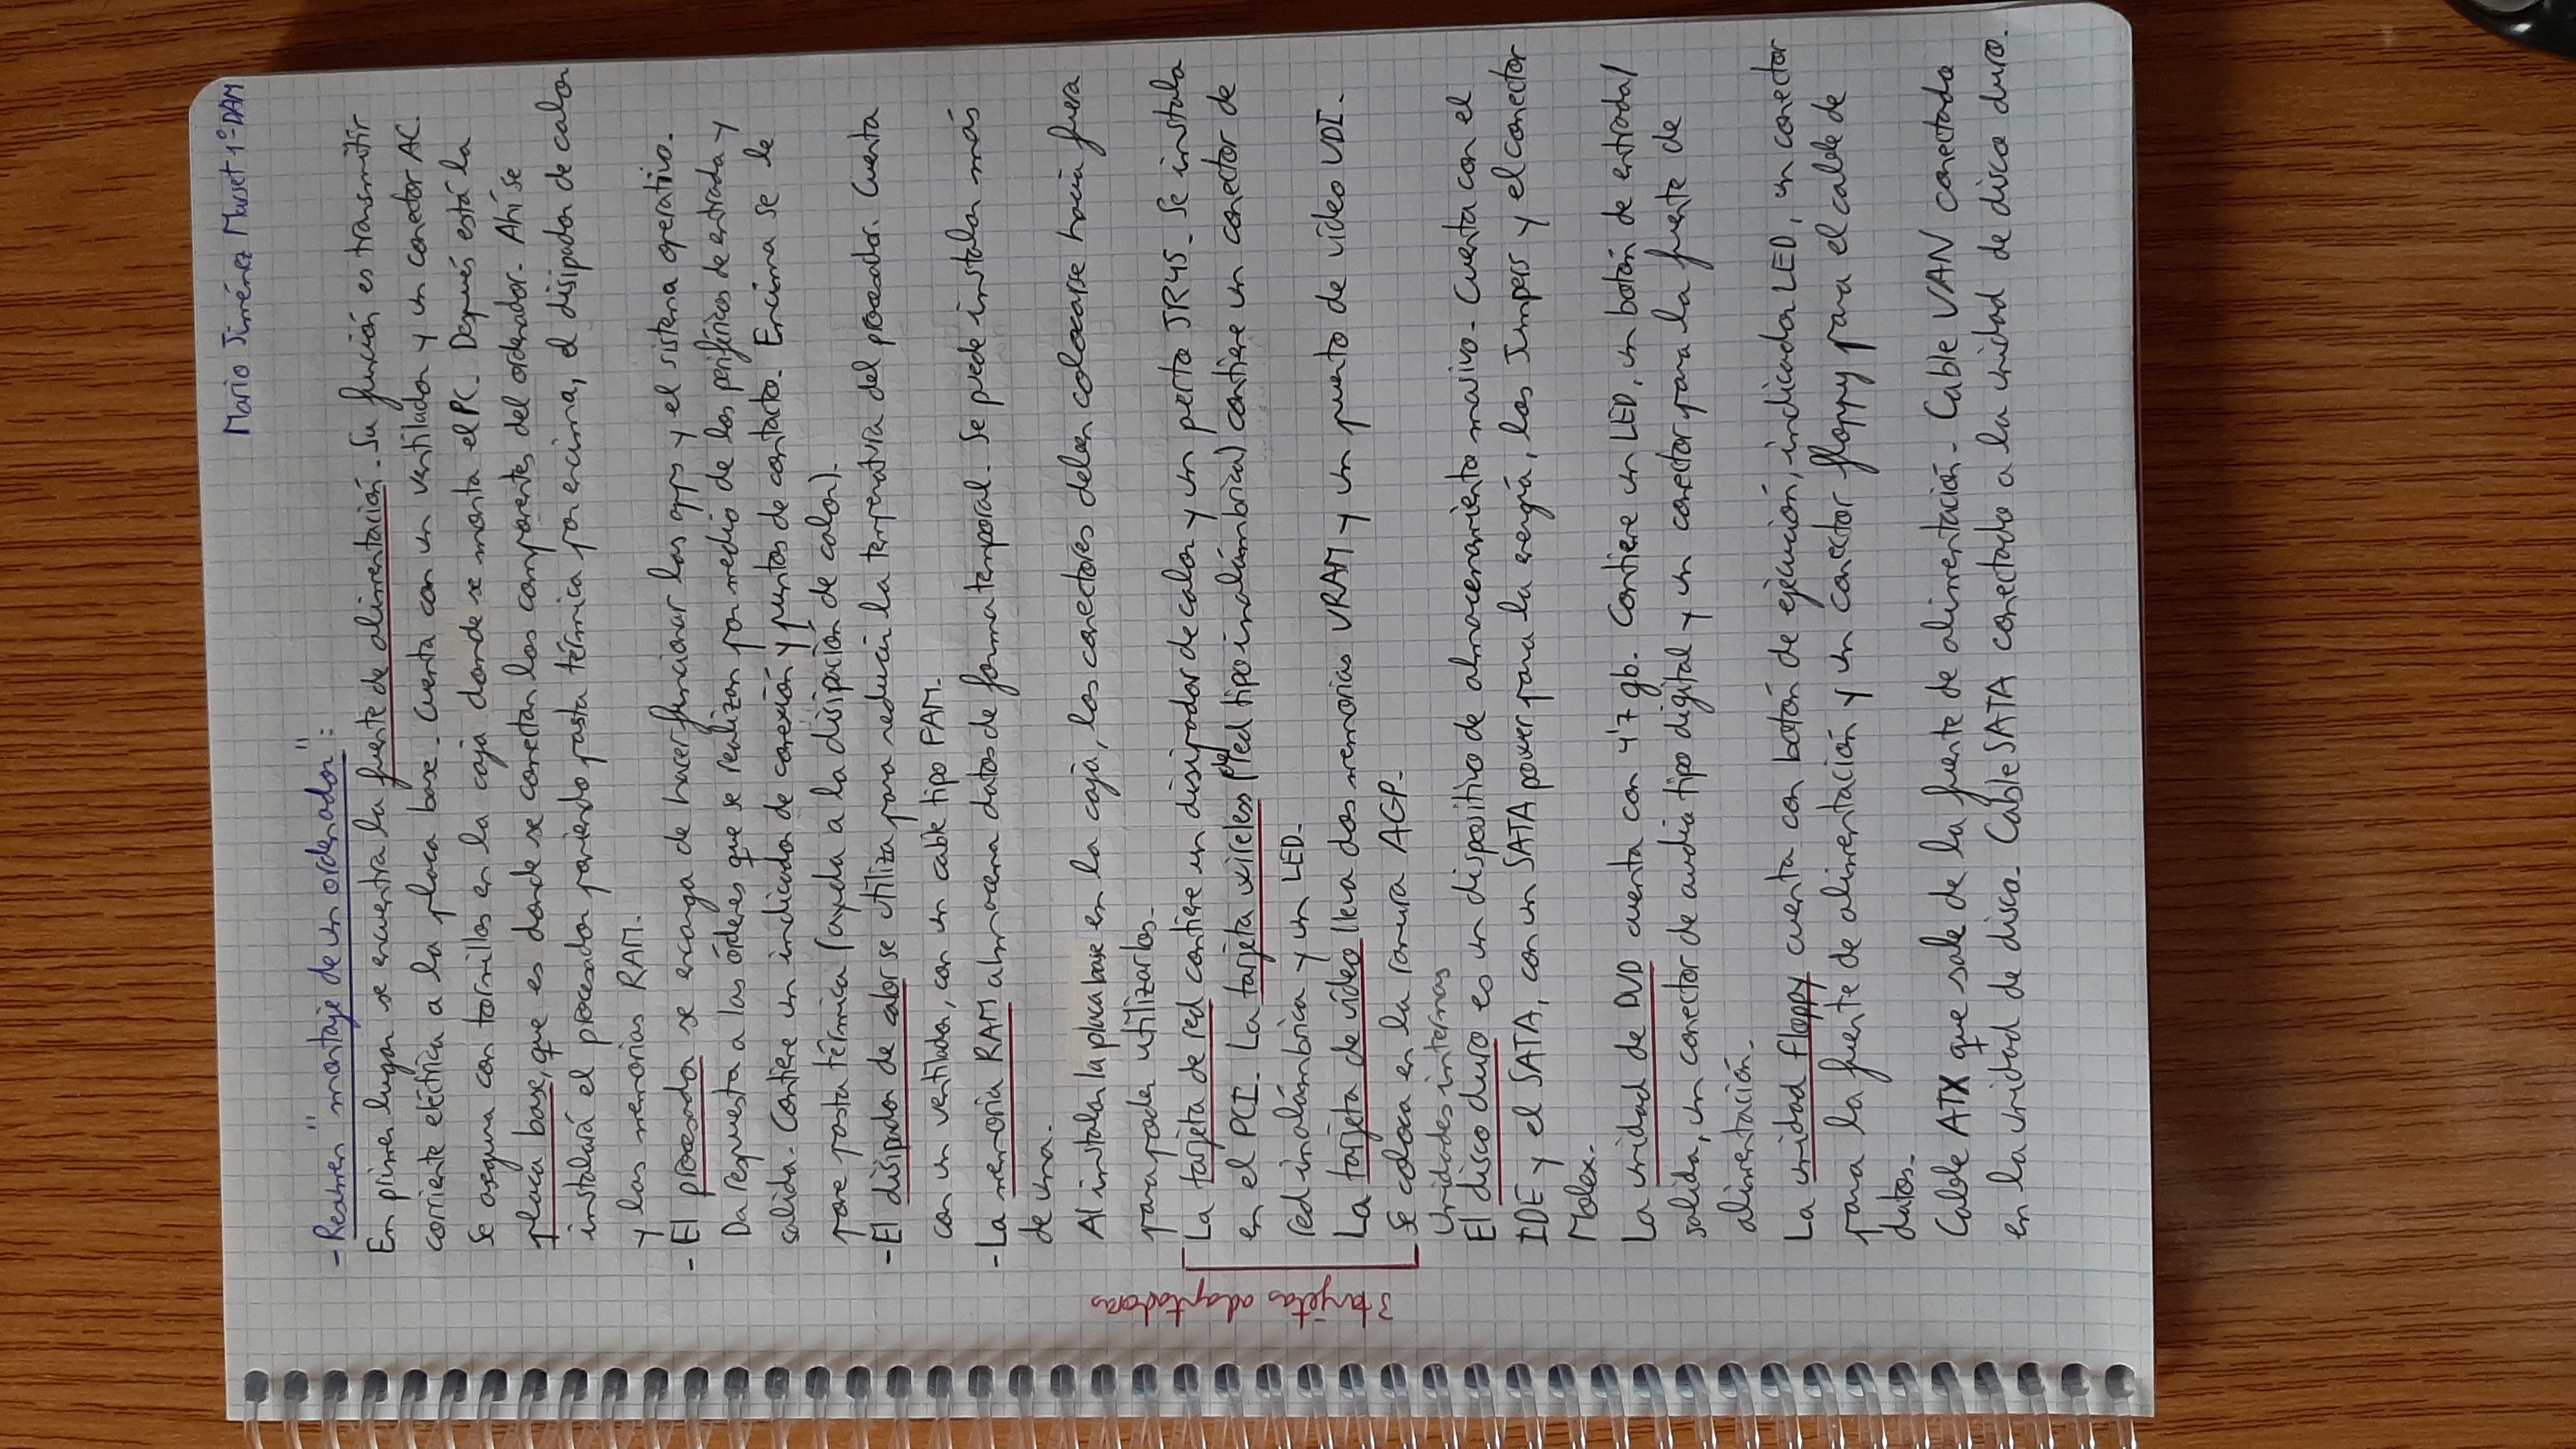 Mario Jiménez Marset 1º DAM
- Resumen "montaje de un ordenador":
En primer lugar se encuentra la fuente de alimentación. Su función es transmitir
corriente eléctrica a la placa base. Cuenta con un ventilador y un conector AC.
Se asegura con tornillos en la caja donde se monta el PC. Después está la
placa base, que es donde se conectan los componentes del ordenador. Ahí se
instalará el procesador poniendo pasta térmica por encima, el disipador de calor
y las memorias RAM.
- El procesador se encarga de hacer funcionar las apps y el sistema operativo.
Da respuesta a las órdenes que se realizan por medio de los periféricos de entrada y
salida. Contiene un indicador de conexión y puntos de contacto. Encima se le
pone pasta térmica (ayuda a la disipación de calor).
- El disipador de calor se utiliza para reducir la temperatura del procesador. Cuenta
con un ventilador, con un cable tipo FAM.
- La memoria RAM almacena datos de forma temporal. Se puede instalar más
de una.
Al instalar la placa base en la caja, los conectores deben colocarse hacia fuera
para poder utilizarlos.
3 tarjetas adaptadoras
La tarjeta de red contiene un disipador de calor y un perto JR45. Se instala
en el PCI. La tarjeta wireless (de red tipo inalámbrica) contiene un conector de
red inalámbrica y un LED.
La tarjeta de vídeo lleva dos memorias VRAM y un puerto de vídeo VDI.
Se coloca en la ranura AGP.
Unidades internas
El disco duro es un dispositivo de almacenamiento masivo. Cuenta con el
IDE y el SATA, con un SATA power para la energía, los Jumpers y el conector
Molex.
La unidad de DVD cuenta con 4'7 gb. Contiene un LED, un botón de entrada/
salida, un conector de audio tipo digital y un conector para la fuente de
alimentación.
La unidad floppy cuenta con botón de ejecución, indicador LED, un conector
para la fuente de alimentación y un conector floppy para el cable de
datos.
Cable ATX que sale de la fuente de alimentación. Cable VAN conectado
en la unidad de disco. Cable SATA conectado a la unidad de disco duro.